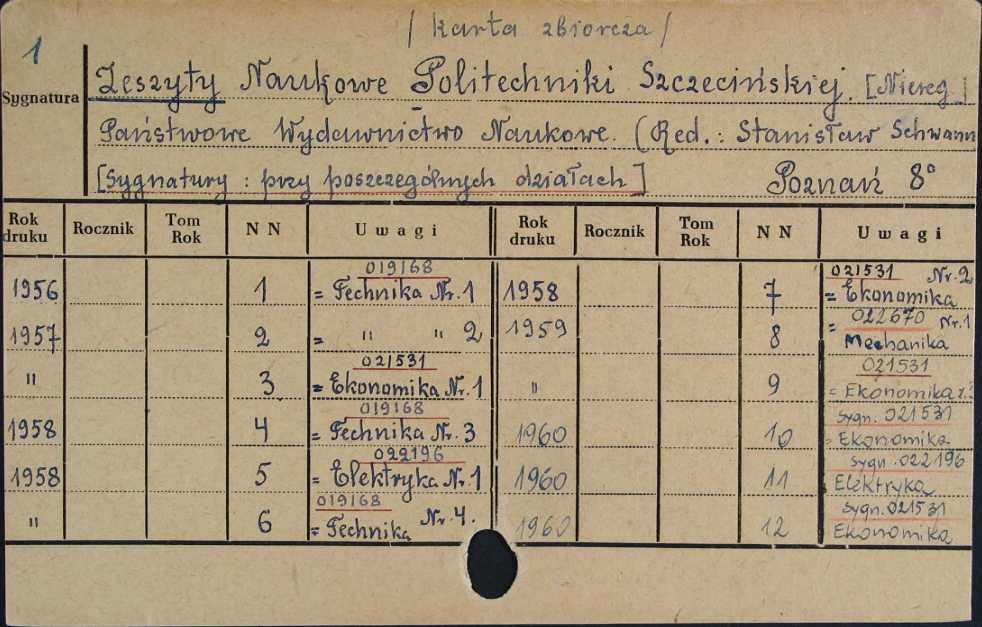 / karta zbiorcza /
1
Sygnatura
Zeszyty Naukowe Politechniki Szczecińskiej. [Niereg.]
Państwowe Wydawnictwo Naukowe. (Red.: Stanisław Schwann
[Sygnatury : przy poszczególnych działach] Poznań 8°
Rok druku Rocznik Tom Rok N N Uwagi Rok druku Rocznik Tom Rok N N Uwagi
019168 021531 Nr. 2
1956 1 = Technika Nr. 1 1958 7 = Ekonomika
022670 Nr. 1
1957 2 = " " 2 1959 8 = Mechanika
021531 021531
" 3 = Ekonomika Nr. 1 " 9 = Ekonomika
019168 sygn. 021531
1958 4 = Technika Nr. 3 1960 10 = Ekonomika
022196 sygn. 022196
1958 5 = Elektryka Nr. 1 1960 11 Elektryka
019168 sygn. 021531
" 6 = Technika Nr. 4. 1960 12 Ekonomika